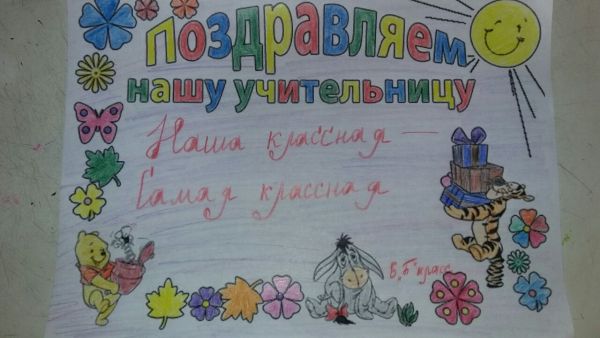 поздравляем
нашу учительницу
Наша классная —
Самая классная
5 "Б" класс